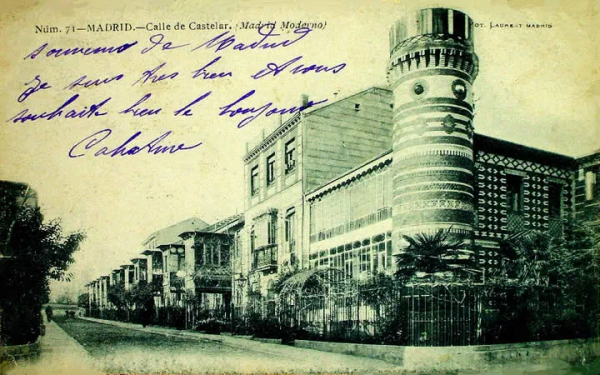 Núm. 71-MADRID.-Calle de Castelar. (Madrid Moderno)
OT. LAURENT MADRID
souvenir de Madrid
Je suis tres bien et vous
souhaite bien le bonjour